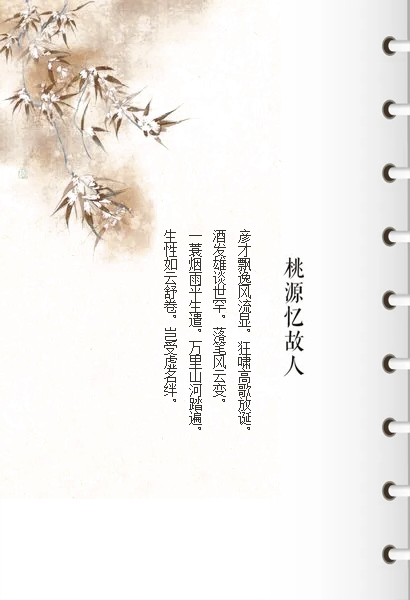 桃源忆故人
彦才飘逸风流显。狂啸高歌放诞。
酒发雄谈世罕。落笔风云变。
一蓑烟雨平生遣。万里山河踏遍。
生性如云舒卷。岂受虚名绊。